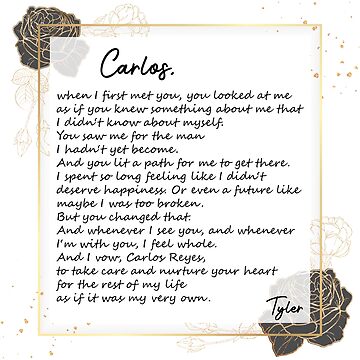 Carlos.
when I first met you, you looked at me
as if you knew something about me that
I didn't know about myself.
You saw me for the man
I hadn't yet become.
And you lit a path for me to get there.
I spent so long feeling like I didn't
deserve happiness. Or even a future like
maybe I was too broken.
But you changed that.
And whenever I see you, and whenever
I'm with you, I feel whole.
And I vow, Carlos Reyes,
to take care and nurture your heart
for the rest of my life
as if it was my very own.
Tyler